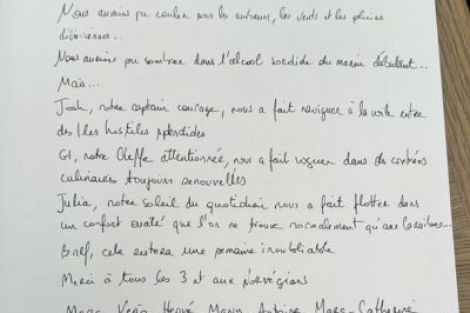 Nous aurions pu couler pour les vents et les pluies
Nous aurions pu sombrer dans l'alcool sordide du marin débutant...
Mais...
Josh, notre captain courage, nous a fait naviguer à la voile entre
des îles hostiles splendides
GI, notre Cheffe attentionnée, nous a fait voguer dans des contrées
culinaires toujours renouvelles
Julia, notre soleil du quotidien nous a fait flotter dans
un confort ouaté que l'on ne trouve normalement qu'aux Caraïbes...
Bref, cela restera une semaine inoubliable
Merci à tous les 3 et aux Norvégiens
Hervé Antoine Marc-Catherine